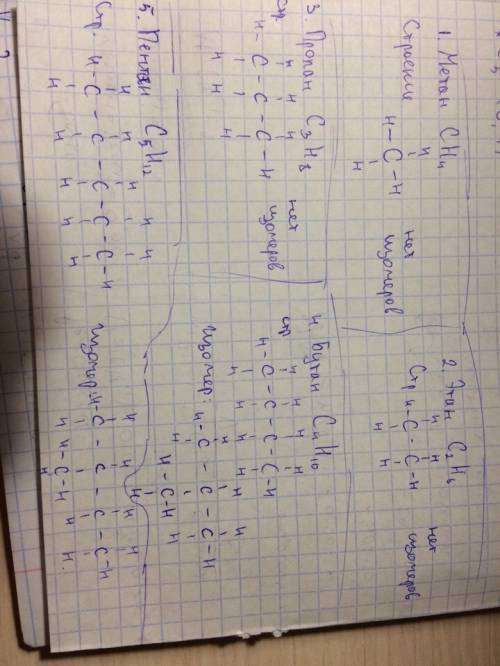 1. Метан CH4
Строение
H
H – C – H
H
нет изомеров
2. Этан C2H6
Стр
H H
H – C – C – H
H H
нет изомеров
3. Пропан C3H8
стр
H H H
H – C – C – C – H
H H H
нет изомеров
4. Бутан C4H10
стр
H H H H
H – C – C – C – C – H
H H H H
изомер:
H H H
H – C – C – C – H
H H
H – C – H
H
5. Пентан C5H12
Стр.
H H H H H
H – C – C – C – C – C – H
H H H H H
изомер:
H H H H
H – C – C – C – C – H
H H H
H – C – H
H